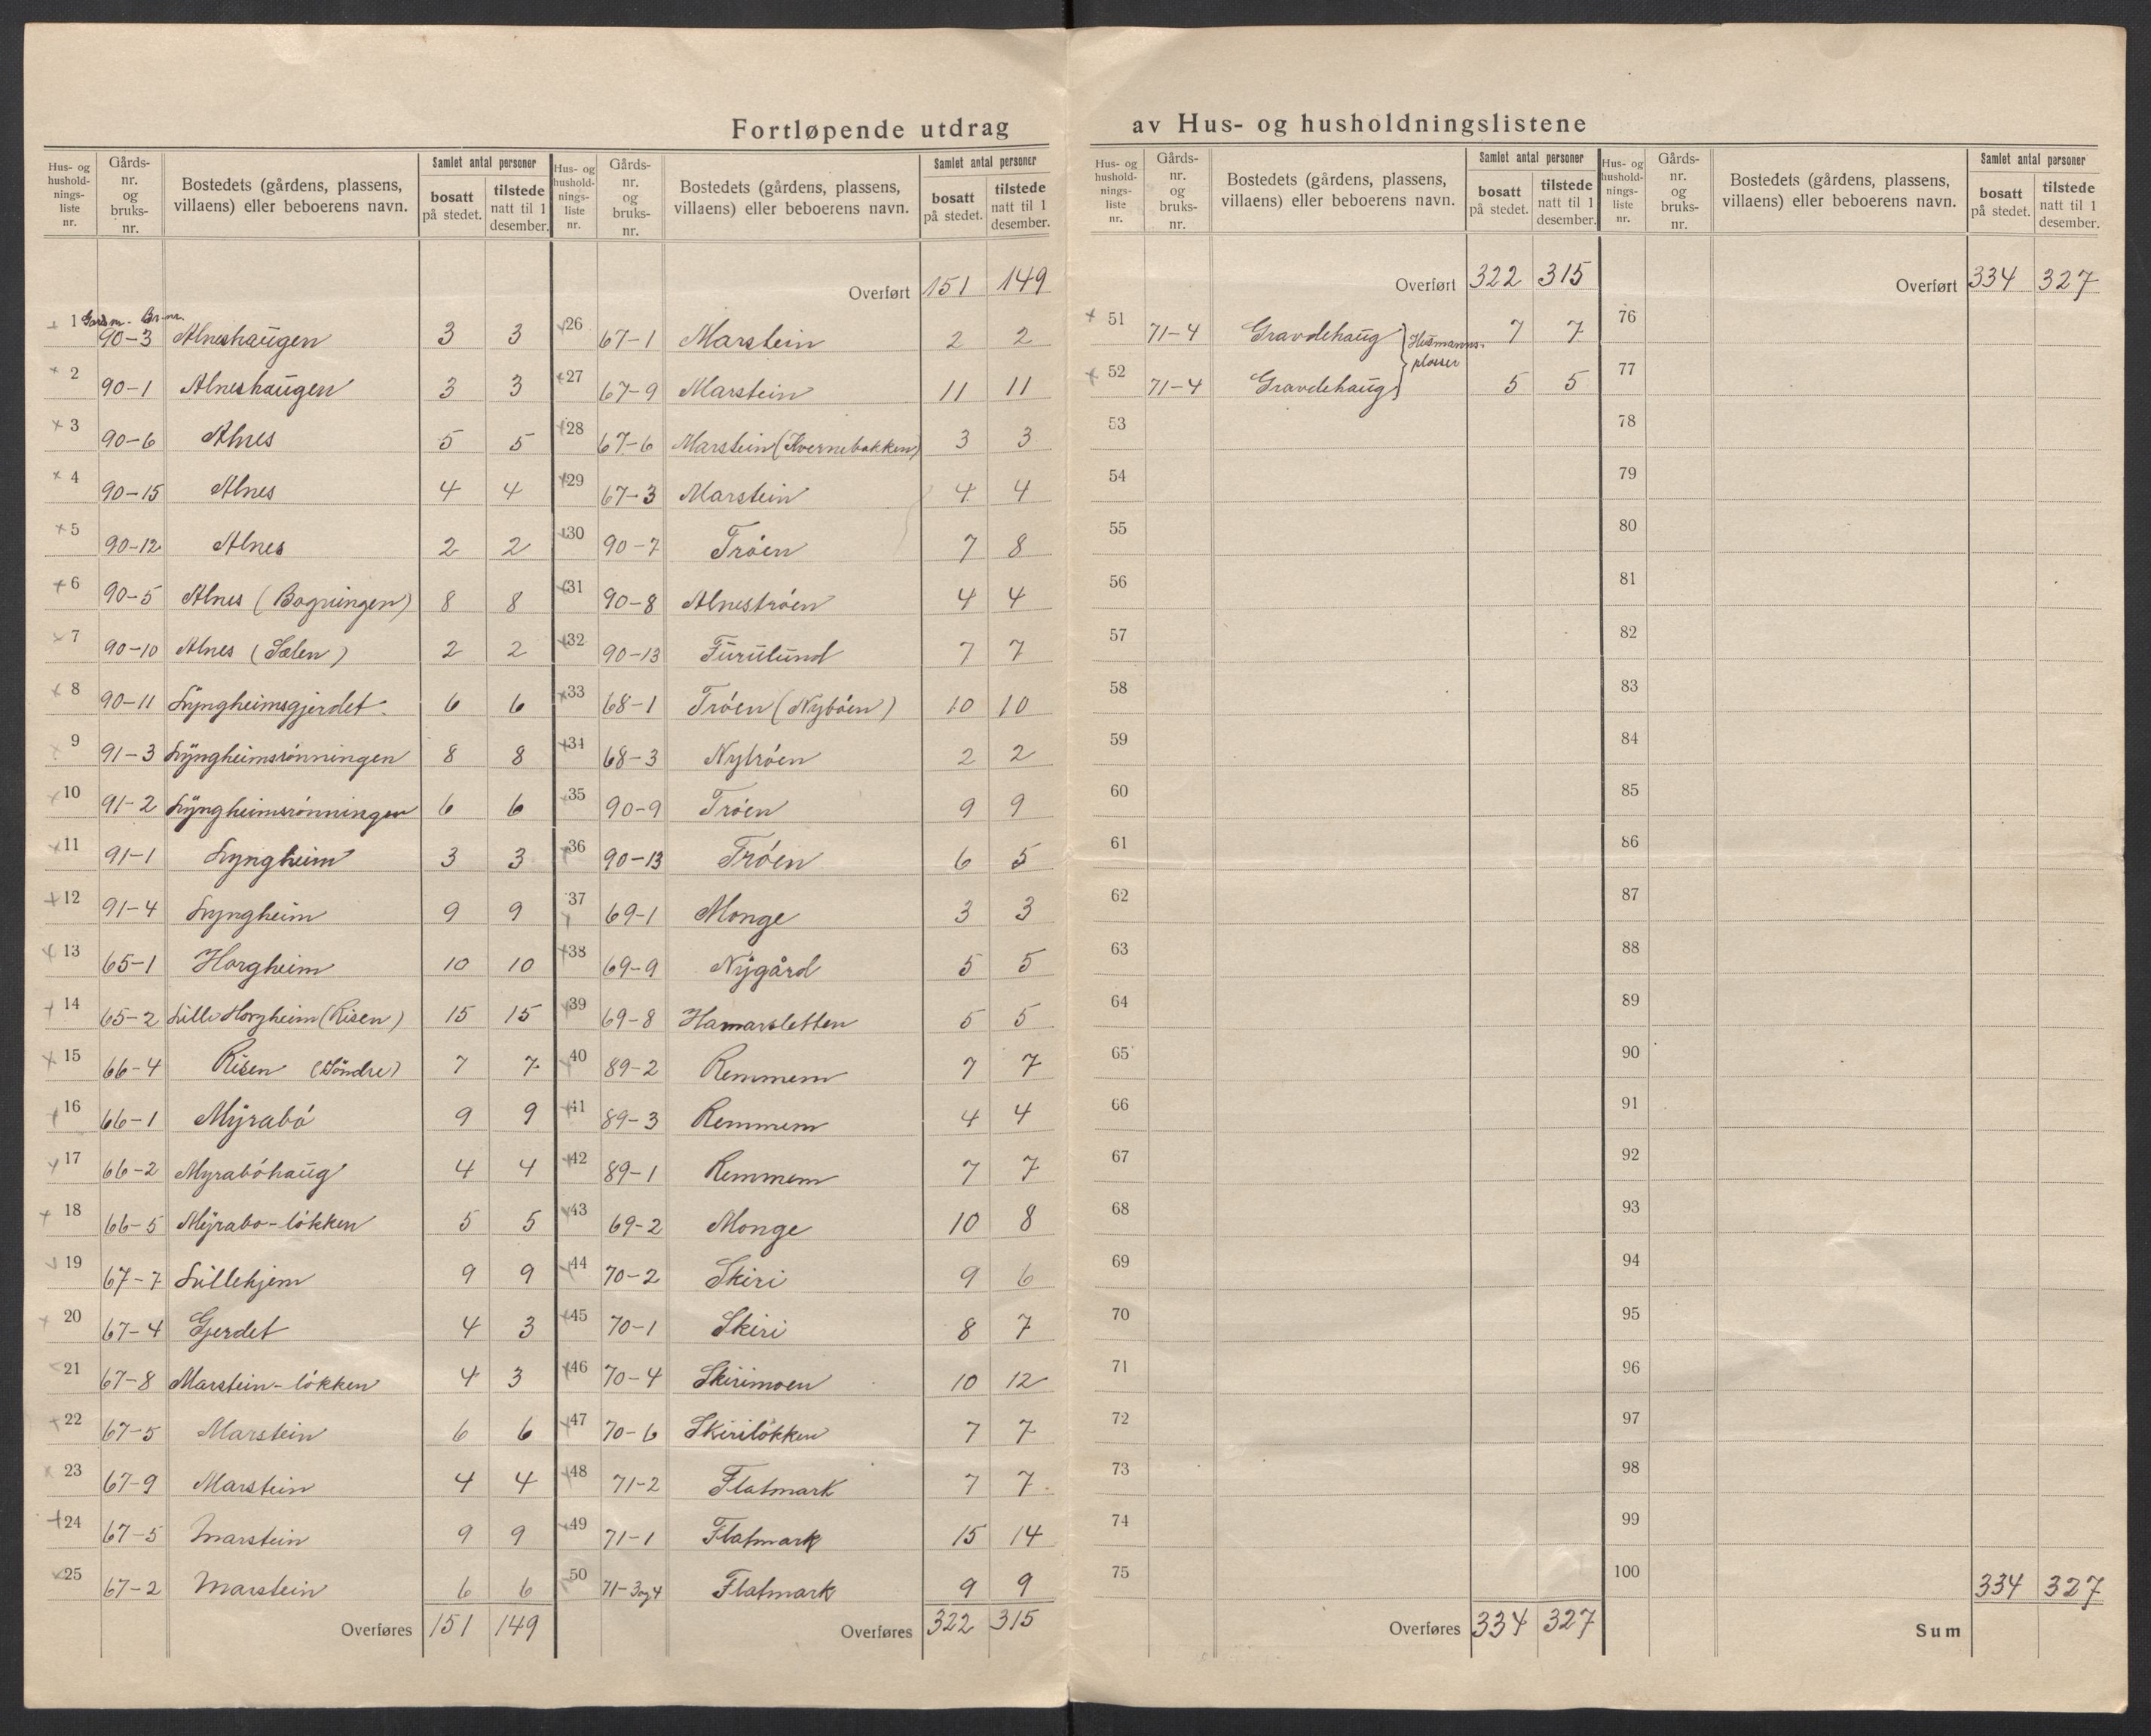 Fortløpende utdrag av Hus- og husholdningslistene
Hus- og hushold-nings-liste nr. | Gårds-nr. og bruks-nr. | Bostedets (gårdens, plassens, villaens) eller beboerens navn. | Samlet antal personer | bosatt på stedet. | tilstede natt til 1 desember.
1 Gardsnr. Br.nr. 90-3 Alneshaugen 3 3
2 90-1 Alneshaugen 3 3
3 90-6 Alnes 5 5
4 90-15 Alnes 4 4
5 90-12 Alnes 2 2
6 90-5 Alnes (Bogningen) 8 8
7 90-10 Alnes (Sælen) 2 2
8 90-11 Lyngheimsgjerdet 6 6
9 91-3 Lyngheimsrønningen 8 8
10 91-2 Lyngheimsrønningen 6 6
11 91-1 Lyngheim 3 3
12 91-4 Lyngheim 9 9
13 65-1 Horgheim 10 10
14 65-2 Lille Horgheim (Risen) 15 15
15 66-4 Risen (Søndre) 7 7
16 66-1 Myrabø 9 9
17 66-2 Myrabøhaug 4 4
18 66-5 Myrabø-løkken 5 5
19 67-7 Lillehjem 9 9
20 67-4 Gjerdet 4 3
21 67-8 Marstein-løkken 4 3
22 67-5 Marstein 6 6
23 67-9 Marstein 4 4
24 67-5 Marstein 9 9
25 67-2 Marstein 6 6
Overføres 151 149
Hus- og hushold-nings-liste nr. | Gårds-nr. og bruks-nr. | Bostedets (gårdens, plassens, villaens) eller beboerens navn. | Samlet antal personer | bosatt på stedet. | tilstede natt til 1 desember.
Overført 151 149
26 67-1 Marstein 2 2
27 67-9 Marstein 11 11
28 67-6 Marstein (Kvernebakken) 3 3
29 67-3 Marstein 4 4
30 90-7 Trøen 7 8
31 90-8 Alnestrøen 4 4
32 90-13 Furulund 7 7
33 68-1 Trøen (Nybøen) 10 10
34 68-3 Nytrøen 2 2
35 90-9 Trøen 9 9
36 90-13 Trøen 6 5
37 69-1 Monge 3 3
38 69-9 Nygård 5 5
39 69-8 Hamarsletten 5 5
40 89-2 Remmem 7 7
41 89-3 Remmem 4 4
42 89-1 Remmem 7 7
43 69-2 Monge 10 8
44 70-2 Skiri 9 6
45 70-1 Skiri 8 7
46 70-4 Skirimoen 10 12
47 70-6 Skiriløkken 7 7
48 71-2 Flatmark 7 7
49 71-1 Flatmark 15 14
50 71-3og4 Flatmark 9 9
Overføres 322 315
Hus- og hushold-nings-liste nr. | Gårds-nr. og bruks-nr. | Bostedets (gårdens, plassens, villaens) eller beboerens navn. | Samlet antal personer | bosatt på stedet. | tilstede natt til 1 desember.
Overført 322 315
51 71-4 Gravdehaug } Husmanns- 7 7
plasser
52 71-4 Gravdehaug } 5 5
53
54
55
56
57
58
59
60
61
62
63
64
65
66
67
68
69
70
71
72
73
74
75
Overføres 334 327
Hus- og hushold-nings-liste nr. | Gårds-nr. og bruks-nr. | Bostedets (gårdens, plassens, villaens) eller beboerens navn. | Samlet antal personer | bosatt på stedet. | tilstede natt til 1 desember.
Overført 334 327
76
77
78
79
80
81
82
83
84
85
86
87
88
89
90
91
92
93
94
95
96
97
98
99
100
334 327
Sum